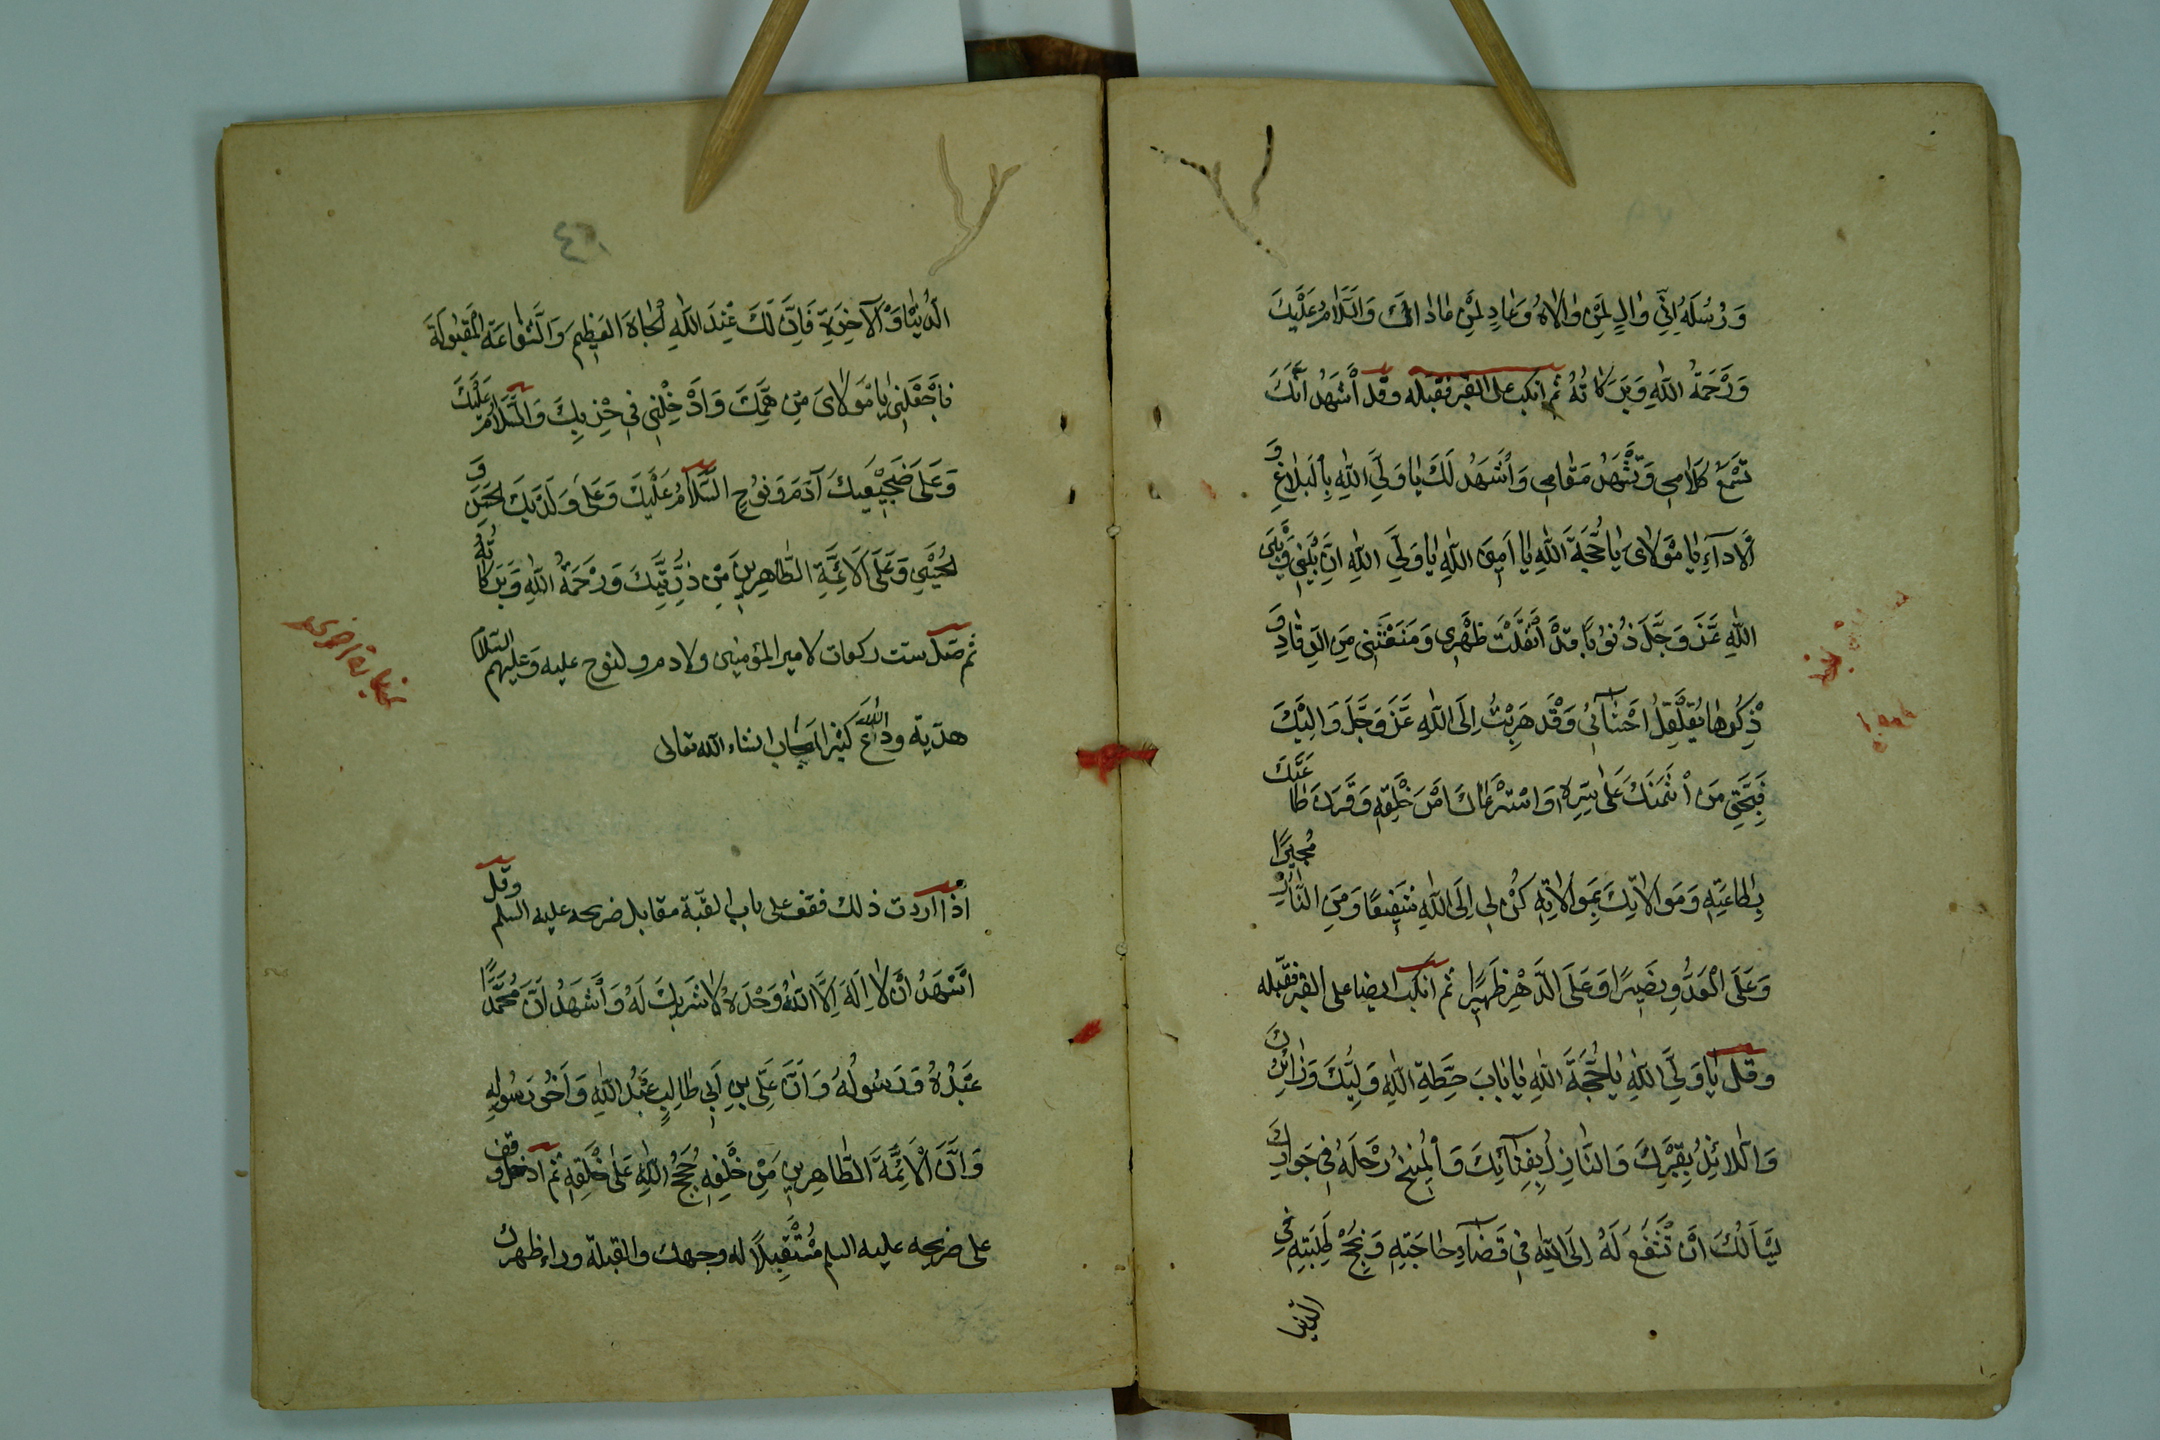 وَرُسُلَهُ اِنّي وٰالٍ لِمَنْ وٰالاٰهُ وَعٰادٍ لِمَنْ عٰاداكَ وَالسَّلاٰمُ عَلَيْكَ
وَرَحْمَةُ اللّٰهِ وَبَرَكٰاتُهُ ثم انكب على القبر فقبّله وقل أَشْهَدُ اَنَّكَ
تَسْمَعُ كَلاٰمي وَتَشْهَدُ مَقٰامي وَأَشْهَدُ لَكَ يٰا وَلِيَّ اللّٰهِ بِالْبَلاٰغِ وَ
الْاَدٰآءِ يٰا مَوْلاٰىَ يٰا حُجَّةَ اللّٰهِ يٰا اَمينَ اللّٰهِ يٰا وَلِيَّ اللّٰهِ اِنَّ بَيْني وَبَيْنَ
اللّٰهِ عَزَّ وَجَلَّ ذُنُوبًا قَدْ أَثْقَلَتْ ظَهْري وَمَنَعَتْني مِنَ الرِّقٰادِ وَ
ذِكْرُهٰا يُقَلْقِلُ اَحْشٰآئي وَقَدْ هَرِبْتُ اِلَى اللّٰهِ عَزَّ وَجَلَّ وَاِلَيْكَ
فَبِحَقِّ مَنْ ائْتَمَنَكَ عَلىٰ سِرِّهِ وَاسْتَرْعٰاكَ اَمْرَ خَلْقِهِ وَقَرَنَ طٰاعَتَكَ
بِطٰاعَتِهِ وَمُوٰالاٰتِكَ بِمُوٰالاٰتِهِ كُنْ لي اِلَى اللّٰهِ شَفيعًا وَمِنَ النّٰارِ مُجيرًا
وَعَلَى الْعَدُوِّ نَصيرًا وَعَلَى الدَّهْرِ ظَهيرًا ثم انكب ايضا على القبر فقبّله
وقل يٰا وَلِيَّ اللّٰهِ يٰا حُجَّةَ اللّٰهِ يٰا بٰابَ حِطَّةِ اللّٰهِ وَلِيُّكَ وَزٰائِرُكَ
وَاللاّٰئِذُ بِقَبْرِكَ وَالنّٰازِلُ بِفِنٰآئِكَ وَالْمُنيخُ رَحْلَهُ في جِوٰارِكَ
يَسْأَلُكَ أَنْ تَشْفَعَ لَهُ اِلَى اللّٰهِ في قَضٰآءِ حٰاجَتِهِ وَنُجْحِ طَلِبَتِهِ فِي
الدنيا
٤١
الدُّنْيٰا وَالْآخِرَةِ فَاِنَّ لَكَ عِنْدَ اللّٰهِ الْجٰاهَ الْعَظيمَ وَالشَّفٰاعَةَ الْمَقْبُولَةَ
فَاجْعَلْني يٰا مَوْلاٰىَ مِنْ هَمِّكَ وَاَدْخِلْني في حِزْبِكَ وَالسَّلاٰمُ عَلَيْكَ
وَعَلىٰ ضَجيعَيْكَ آدَمَ وَنُوحٍ السَّلاٰمُ عَلَيْكَ وَعَلىٰ وَلَدَيْكَ الْحَسَنِ وَ
الْحُسَيْنِ وَعَلَى الْاَئِمَّةِ الطّٰاهِرينَ مِنْ ذُرِّيَّتِكَ وَرَحْمَةُ اللّٰهِ وَبَرَكٰاتُهُ
ثم صلّ ست ركعات لامير المؤمنين ولادم ولنوح عليه وعليهم السلام
هديّة وداع الله كثيرا انشاء الله تعالى
زيارة اخرى
اذا اردت ذلك فقف على باب القبّة مقابل ضريحه عليه السلم وقل
اَشْهَدُ أَنْ لاٰ اِلَهَ اِلاَّ اللّٰهُ وَحْدَهُ لاٰ شَريكَ لَهُ وَأَشْهَدُ أَنَّ مُحَمَّدًا
عَبْدُهُ وَرَسُولُهُ وَاَنَّ عَلِيَّ بْنَ اَبي طٰالِبٍ عَبْدُ اللّٰهِ وَاَخُو رَسُولِهِ
وَاَنَّ الْاَئِمَّةَ الطّٰاهِرينَ مِنْ خَلْفِهِ حُجَجُ اللّٰهِ عَلىٰ خَلْقِهِ ثم ادخل وقف
على ضريحه عليه السلم مُسْتَقْبِلًا له وجهك والقبلة وراء ظهرك